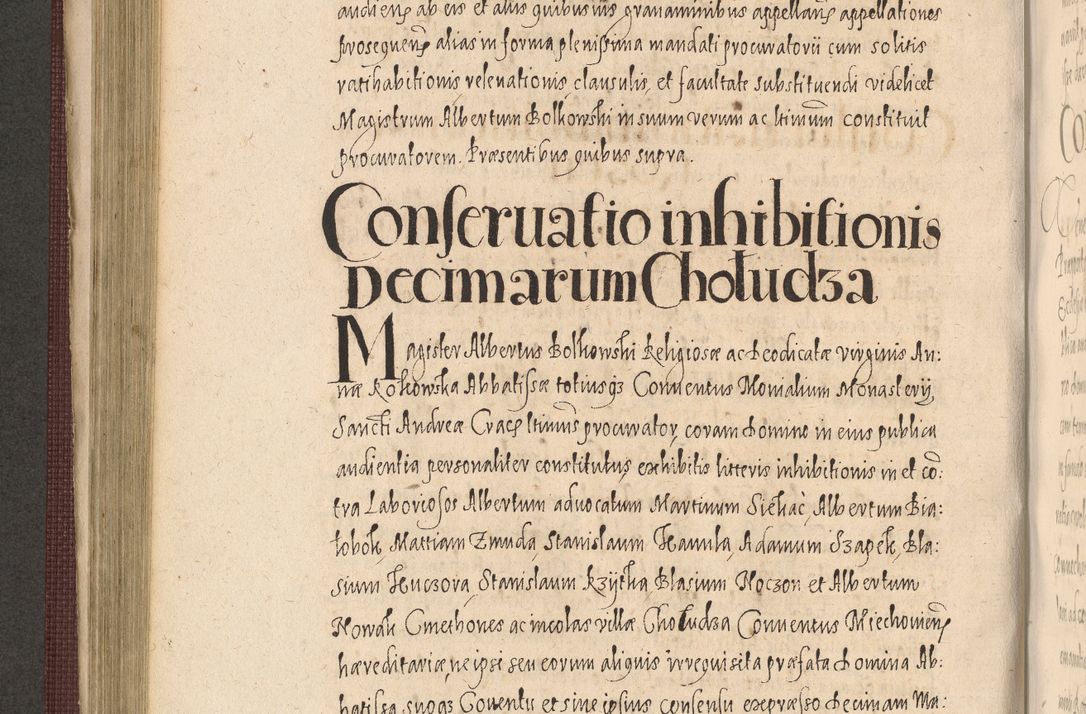 audien ab eis et aliis quibusvis gravaminibus appellan appellationes
prosequen alias in forma plenissima mandati procuratorii cum solitis
ratihabitionis relevationis, clausulis, et facultate substituendi videlicet
Magistrum Albertum Bolkowski in suum verum ac ltimum constituit
procuratorem. Præsentibus quibus supra.
Conseruatio inhibitionis
Decimarum Chołudza
Magister Albertus Bolkowski Religiosæ ac Deodicatæ virginis An-
næ Kokowska Abbatissæ totiusq3 Conuentus Monialium Monasterij
Sancti Andreæ Crac ltimus procurator, coram Domino in eius publica
audientia personaliter constitutus exhibitis litteris inhibitionis in et cō:
tra Laboriosos Albertum aduocatum Martinum Siekac, Albertum Bia:
łobok, Mattiam Zmuda, Stanislaum Kawula, Adamum Szapek, Bla:
sium Kuczora, Stanislaum Krzÿtka Blasium Noczon et Albertum
Nowak Cmethones ac incolas villæ Chołudza Conuentus Miechouien
hæreditariæ, ne ipsi seu eorum aliquis irrequisita præfata Domina Ab:
batissa suoq3 Couentu et sine ipsius consensu expræsso decimam Ma: